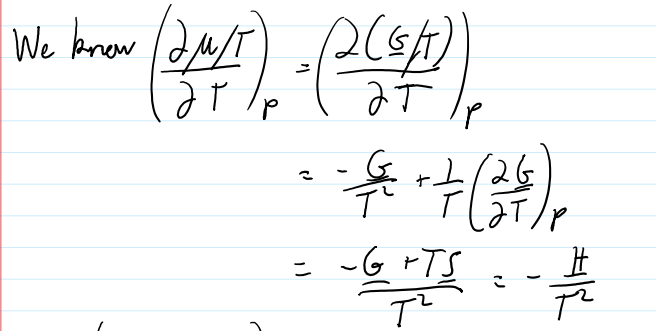 We know (∂μ/T / ∂T)_P = (∂(G̲/T) / ∂T)_P
= - G̲/T² + 1/T (∂G̲/∂T)_P
= (-G̲ + TS̲)/T² = - H̲/T²